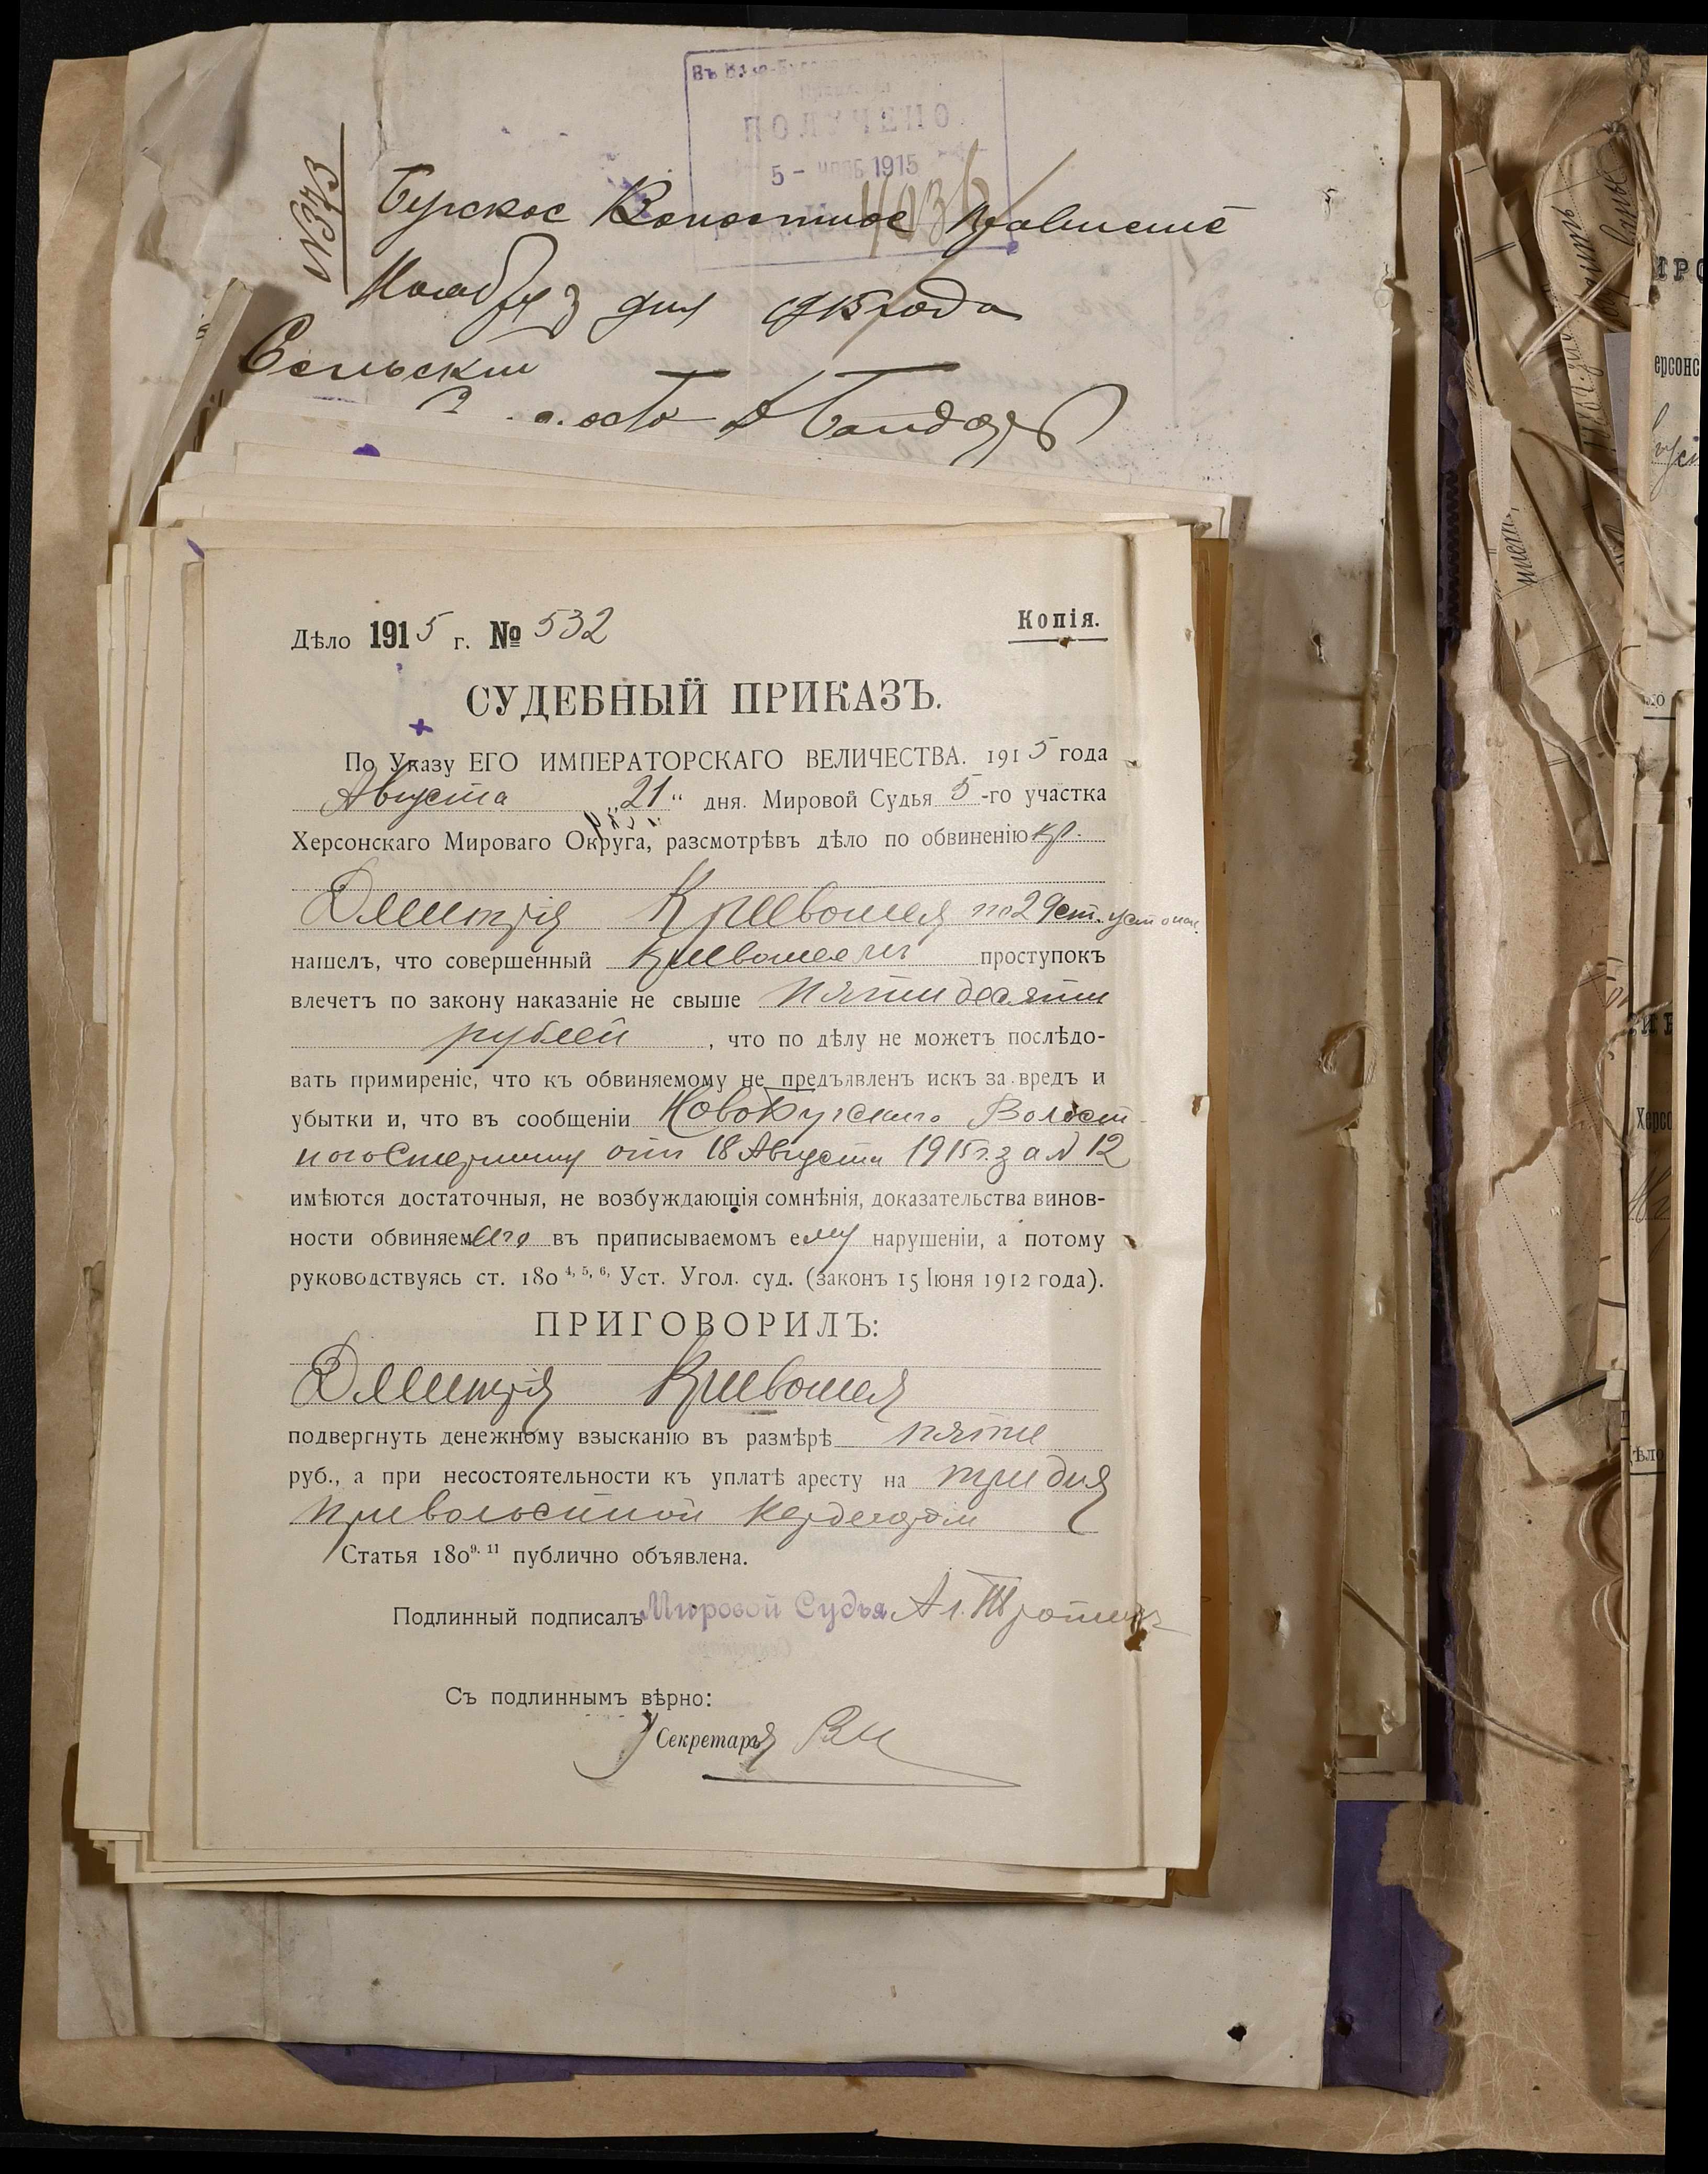 ПОЛУЧЕНО
5 - НОЯБ 1915
4036
№373
Бугское Волостное Правление
Ноября 3 дня 1915 года
Сельский
Дѣло 1915 г. № 532
Копія.
СУДЕБНЫЙ ПРИКАЗЪ.
По Указу ЕГО ИМПЕРАТОРСКАГО ВЕЛИЧЕСТВА. 1915 года
Августа „21“ дня. Мировой Судья 5-го участка
Херсонскаго Мироваго Округа, разсмотрѣвъ дѣло по обвиненію кр.
Дмитрія Кривошея по 29 ст. уст о нак.
нашелъ, что совершенный Кривошеемъ проступокъ
влечетъ по закону наказаніе не свыше пятидесяти
рублей, что по дѣлу не можетъ послѣдо-
вать примиреніе, что къ обвиняемому не предъявленъ искъ за вредъ и
убытки и, что въ сообщеніи Ново Бугскаго Волост
ного Старшины отъ 18 Августа 1915 г. за № 12
имѣются достаточныя, не возбуждающія сомнѣнія, доказательства винов-
ности обвиняемаго въ приписываемомъ ему нарушеніи, а потому
руководствуясь ст. 180 4, 5, 6, Уст. Угол. суд. (законъ 15 Іюня 1912 года).
ПРИГОВОРИЛЪ:
Дмитрія Кривошея
подвергнуть денежному взысканію въ размѣрѣ пяти
руб., а при несостоятельности къ уплатѣ аресту на три дня
при волостной
Статья 180 9. 11 публично объявлена.
Подлинный подписалъ Мировой Судья Ал.
Съ подлиннымъ вѣрно:
Секретарь